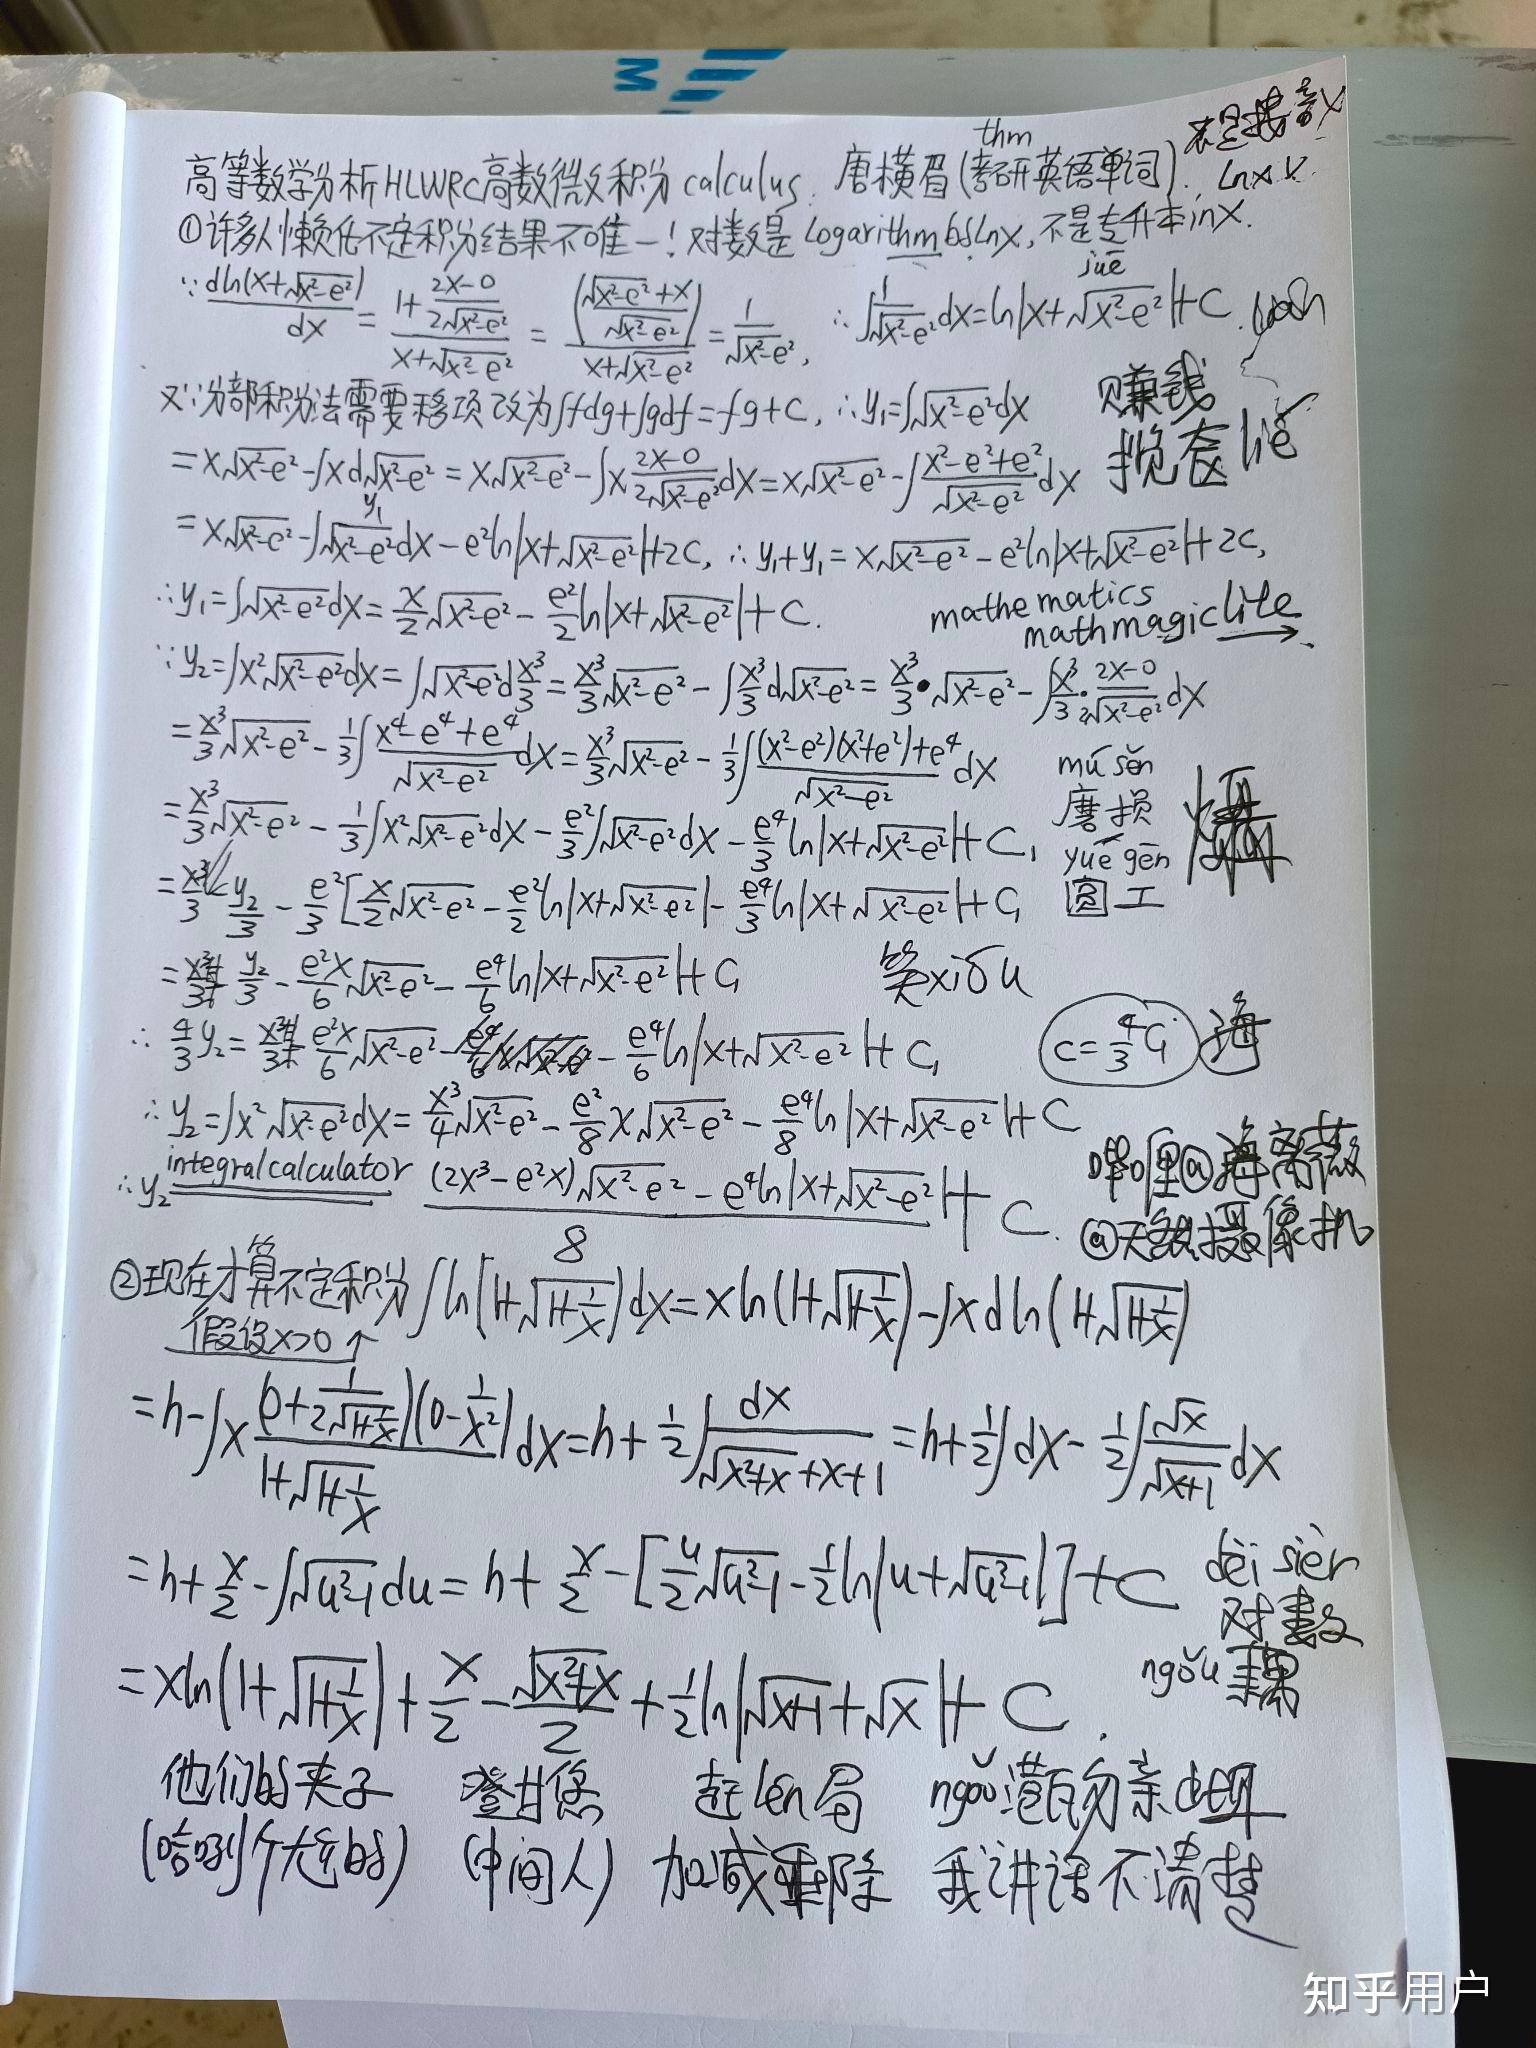 M
thm
高等数学分析HLWRC高数微积分 calculus. 唐横眉(考研英语单词). lnx
①许多人懒化不定积分结果不唯一!对数是Logarithm的lnX,不是专升本inX.
∵ dln(x+√(x²-e²))/dx = (1+(2x-0)/(2√(x²-e²)))/(x+√(x²-e²)) = ((√(x²-e²)+x)/√(x²-e²))/(x+√(x²-e²)) = 1/√(x²-e²), ∴ ∫1/√(x²-e²)dx=ln|x+√(x²-e²)|+C.
jué
又∵分部积分法需要移项改为∫fdg+∫gdf=fg+C, ∴y₁=∫√(x²-e²)dx 赚钱
=x√(x²-e²)-∫xd√(x²-e²)=x√(x²-e²)-∫x(2x-0)/(2√(x²-e²))dx=x√(x²-e²)-∫(x²-e²+e²)/√(x²-e²)dx
y₁
=x√(x²-e²)-∫√(x²-e²)dx-e²ln|x+√(x²-e²)|+2C, ∴y₁+y₁=x√(x²-e²)-e²ln|x+√(x²-e²)|+2C,
∴y₁=∫√(x²-e²)dx=x/2√(x²-e²)-e²/2ln|x+√(x²-e²)|+C. mathematics
mathmagic life
∵y₂=∫x²√(x²-e²)dx=∫√(x²-e²)dx³/3=x³/3√(x²-e²)-∫x³/3d√(x²-e²)=x³/3·√(x²-e²)-∫x³/3·(2x-0)/(2√(x²-e²))dx
=x³/3√(x²-e²)-1/3∫(x⁴-e⁴+e⁴)/√(x²-e²)dx=x³/3√(x²-e²)-1/3∫((x²-e²)(x²+e²)+e⁴)/√(x²-e²)dx
mú sěn
磨损
=x³/3√(x²-e²)-1/3∫x²√(x²-e²)dx-e²/3∫√(x²-e²)dx-e⁴/3ln|x+√(x²-e²)|+C₁
yué gēn
圆工
=x³/3√-y₂/3-e²/3[x/2√(x²-e²)-e²/2ln|x+√(x²-e²)|-e⁴/3ln|x+√(x²-e²)|+C₁
=y₂/3-e²x/6√(x²-e²)-e⁴/6ln|x+√(x²-e²)|+C₁ 笑xiōu
∴ 4/3y₂=e²x/6√(x²-e²)-e⁴/6ln|x+√(x²-e²)|+C₁ C=4/3C₁
∴y₂=∫x²√(x²-e²)dx=x³/4√(x²-e²)-e²/8x√(x²-e²)-e⁴/8ln|x+√(x²-e²)|+C
∴y₂ integralcalculator ((2x³-e²x)√(x²-e²)-e⁴ln|x+√(x²-e²)|)/8+C.
@摄像机
②现在才算不定积分∫ln(1+√(1+1/x))dx=xln(1+√(1+1/x))-∫xdln(1+√(1+1/x))
假设x>0↑
=h-∫x(0+1/(2√(1+1/x)))(0-1/x²)/(1+√(1+1/x))dx=h+1/2∫dx/(√(x²+x)+x+1)=h+1/2∫dx-1/2∫√x/√(x+1)dx
=h+x/2-∫√(u²-1)du=h+x/2-[u/2√(u²-1)-1/2ln|u+√(u²-1)|]+C
dèi sièr
对数
=xln(1+√(1+1/x))+x/2-√(x²+x)/2+1/2ln|√(x+1)+√x|+C.
ngǒu
他们的夹子
(中间人) 加减乘除 我讲话不清楚
知乎用户